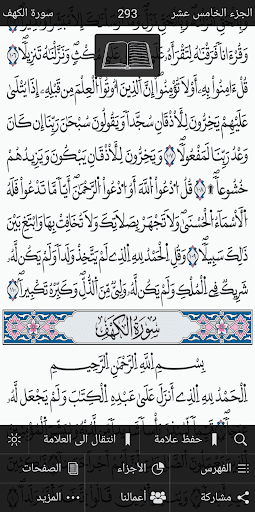 سورة الكهف 293 الجزء الخامس عشر
وَقُرْءَانًا فَرَقْنَٰهُ لِتَقْرَأَهُۥ عَلَى مُكْثٍ وَنَزَّلْنَٰهُ تَنزِيلًا
قُلْ ءَامِنُوا۟ بِهِۦٓ أَوْ لَا تُؤْمِنُوٓا۟ إِنَّ ٱلَّذِينَ أُوتُوا۟ ٱلْعِلْمَ مِن قَبْلِهِۦٓ إِذَا يُتْلَىٰ
عَلَيْهِمْ يَخِرُّونَ لِلْأَذْقَانِ سُجَّدًا ١٠٧ وَيَقُولُونَ سُبْحَٰنَ رَبِّنَآ إِن كَانَ
وَعْدُ رَبِّنَا لَمَفْعُولًا ١٠٨ وَيَخِرُّونَ لِلْأَذْقَانِ يَبْكُونَ وَيَزِيدُهُمْ
خُشُوعًا ۩ ١٠٩ قُلِ ٱدْعُوا۟ ٱللَّهَ أَوِ ٱدْعُوا۟ ٱلرَّحْمَٰنَ أَيًّا مَّا تَدْعُوا۟ فَلَهُ
ٱلْأَسْمَآءُ ٱلْحُسْنَىٰ وَلَا تَجْهَرْ بِصَلَاتِكَ وَلَا تُخَافِتْ بِهَا وَٱبْتَغِ بَيْنَ
ذَٰلِكَ سَبِيلًا ١١٠ وَقُلِ ٱلْحَمْدُ لِلَّهِ ٱلَّذِى لَمْ يَتَّخِذْ وَلَدًا وَلَمْ يَكُن لَّهُۥ
شَرِيكٌ فِى ٱلْمُلْكِ وَلَمْ يَكُن لَّهُۥ وَلِىٌّ مِّنَ ٱلذُّلِّ وَكَبِّرْهُ تَكْبِيرًۢا ١١١
سُورَةُ الكَهْفِ
بِسْمِ ٱللَّهِ ٱلرَّحْمَٰنِ ٱلرَّحِيمِ
ٱلْحَمْدُ لِلَّهِ ٱلَّذِىٓ أَنزَلَ عَلَىٰ عَبْدِهِ ٱلْكِتَٰبَ وَلَمْ يَجْعَل لَّهُۥ
حفظ علامة انتقال الى العلامة
الفهرس الأجزاء الصفحات
مشاركة أعمالنا المزيد